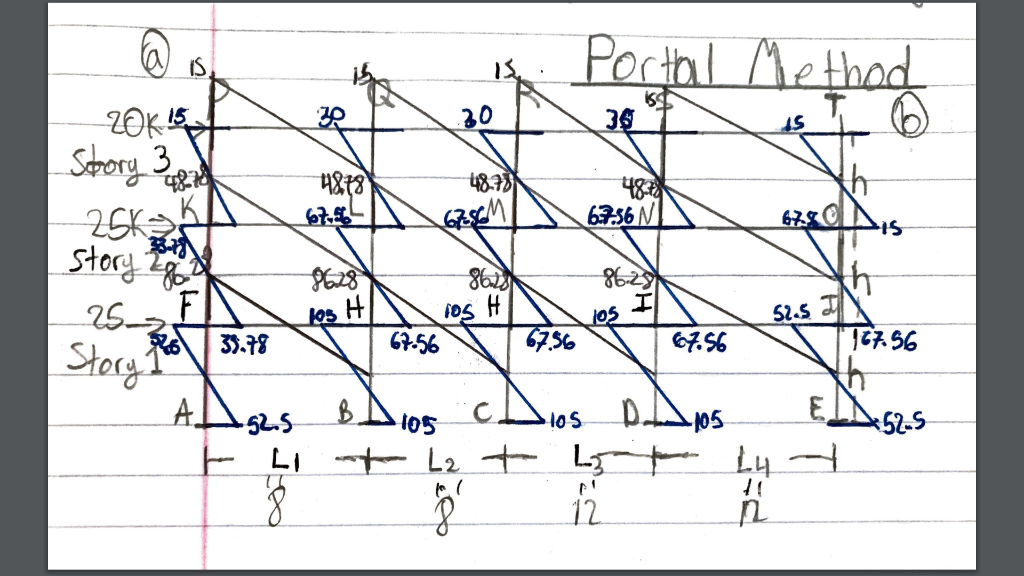 ⓐ 15 15 15 Portal Method
P Q R 15 S T ⓑ
20K → 15 30 30 30 15
Story 3 48.78 48.78 48.78 48.78 h
K L M N O
25K → 67.56 67.56 67.56 67.8 15
33.78
Story 2 86.28 86.28 86.28 86.28 h
F H H I J
25 → 105 105 105 52.5
52.5 33.78 67.56 67.56 67.56 67.56
Story 1 h
A 52.5 B 105 C 105 D 105 E 52.5
L1 L2 L3 L4
" " " "
8 8 12 12